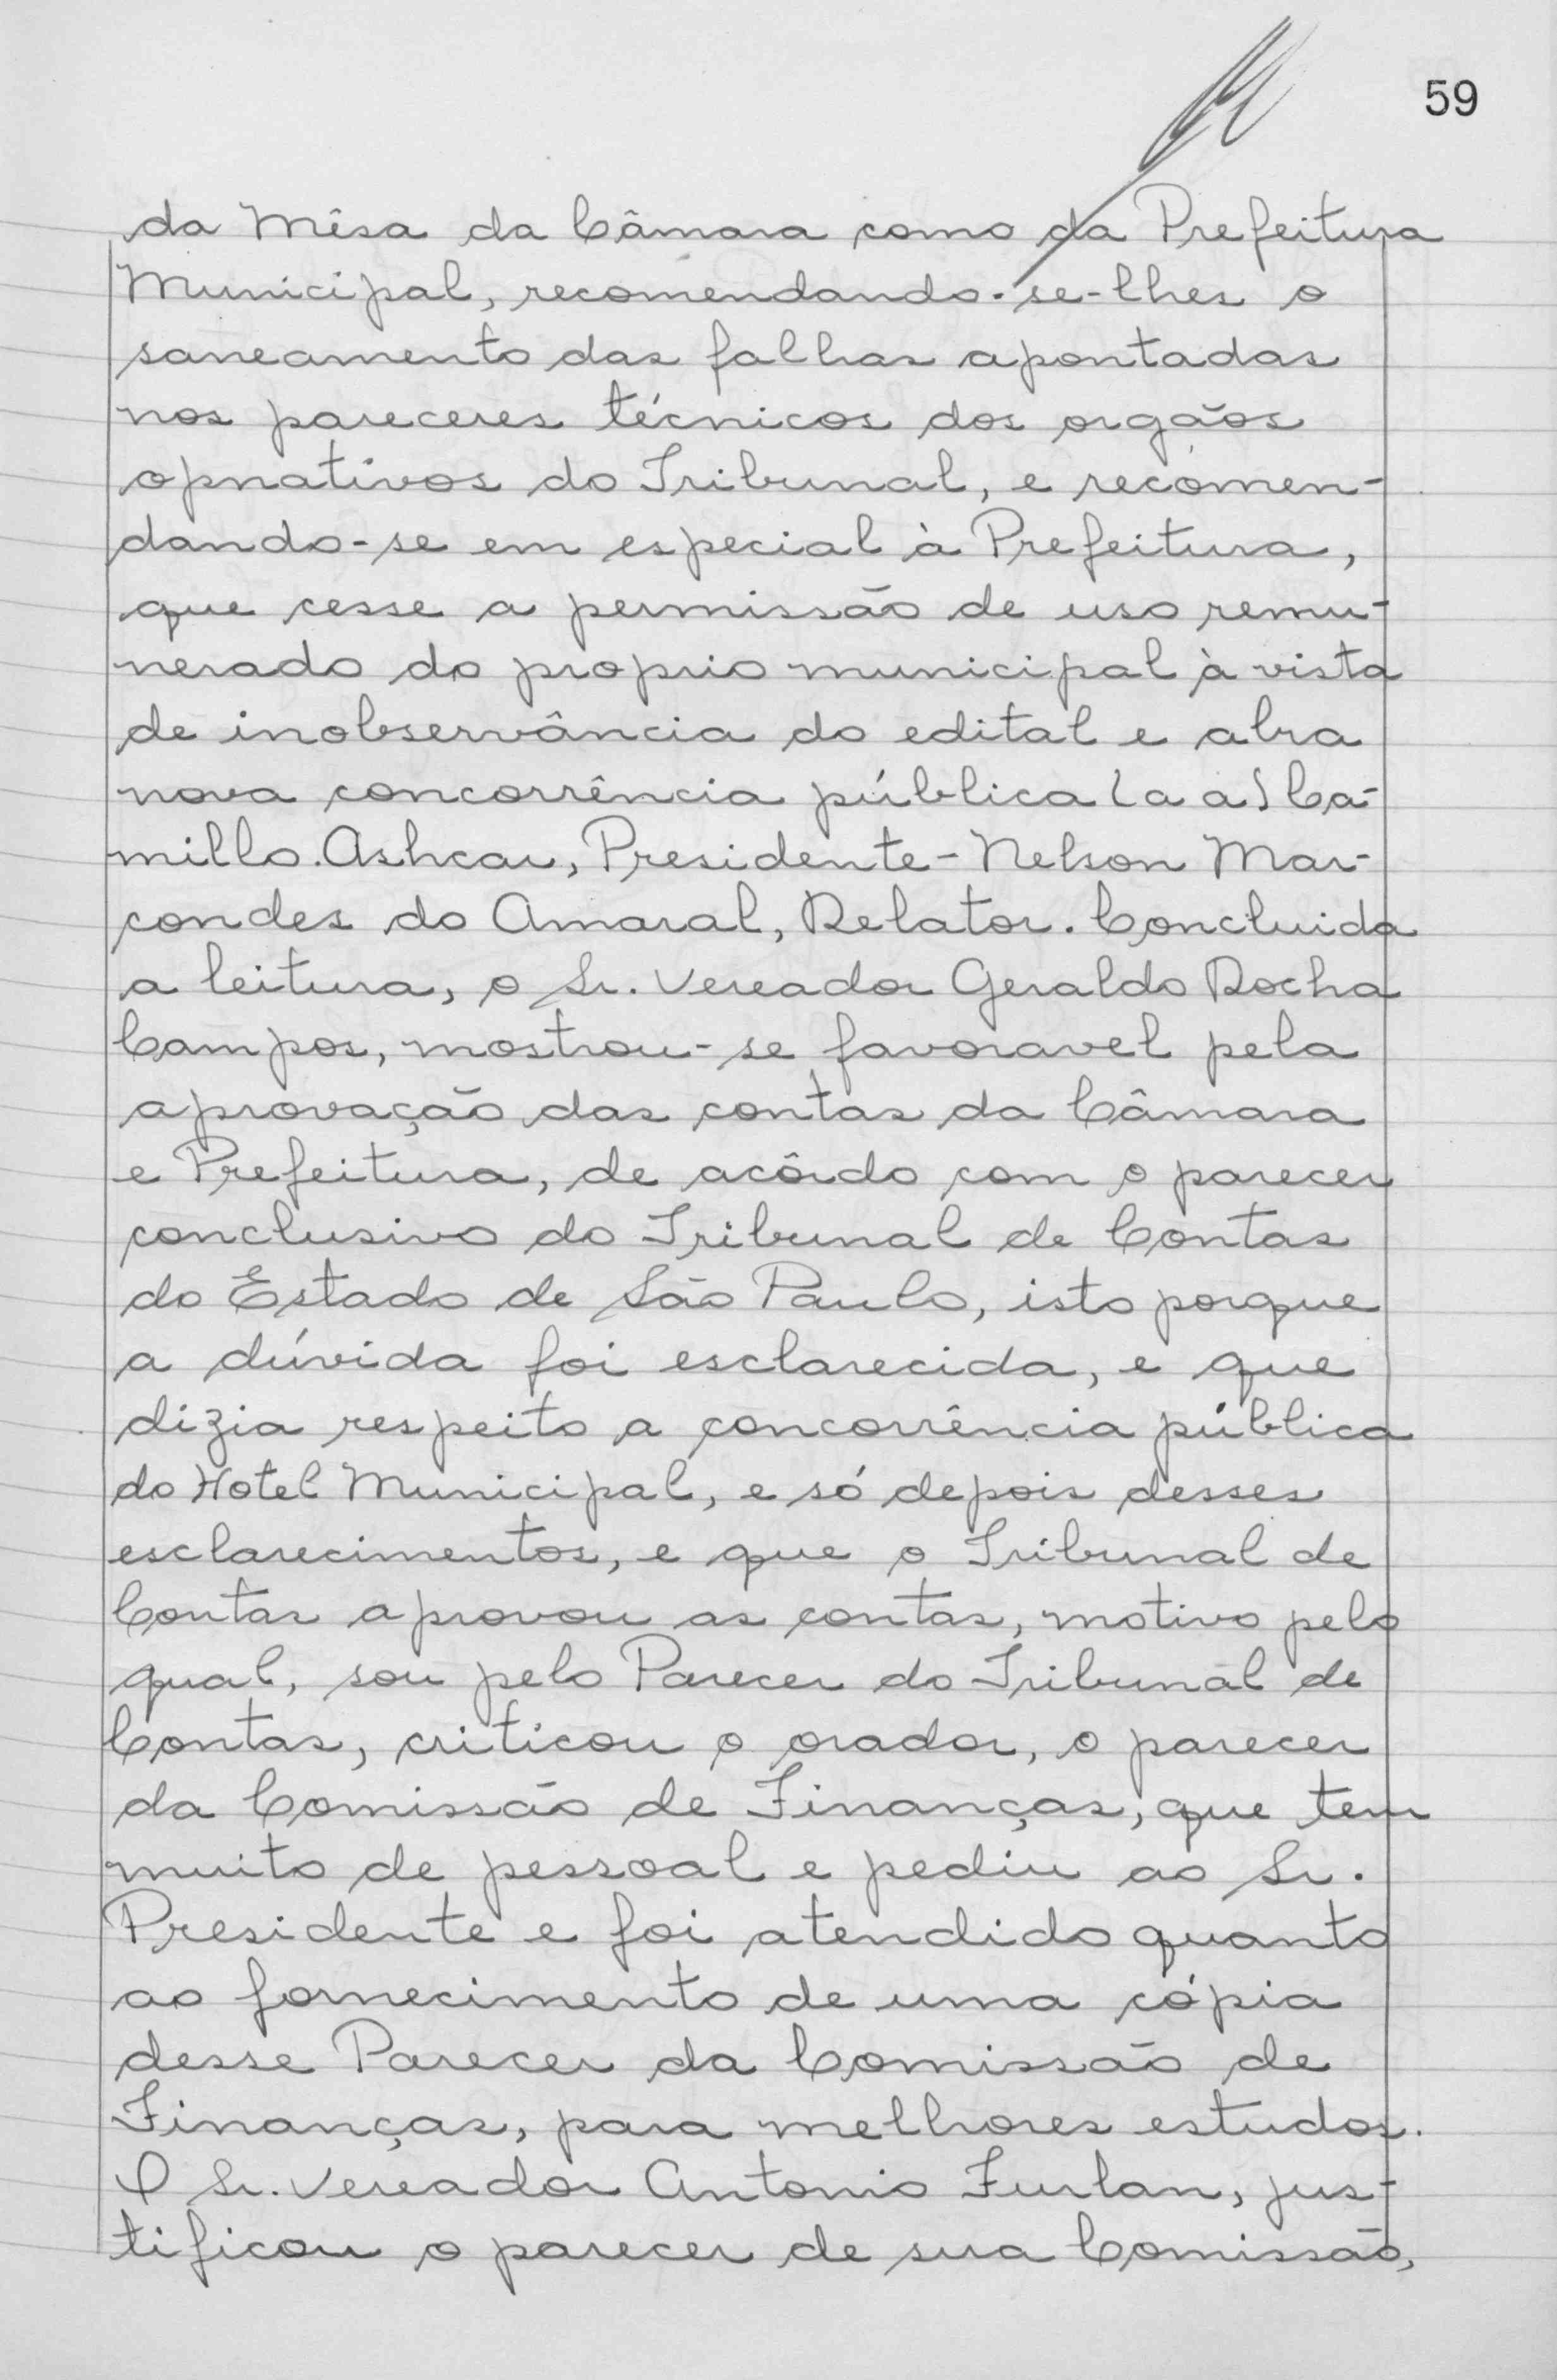 59
da Mêsa da Câmara como da Prefeitura
Municipal, recomendando-se-lhes o
saneamento das falhas apontadas
nos pareceres técnicos dos orgãos
opnativos do Tribunal, e recomen-
dando-se em especial à Prefeitura,
que cesse a permissão de uso remu-
nerado do proprio municipal à vista
de inobservância do edital e abra
nova concorrência pública (a a) Ca-
millo Ashcar, Presidente - Nelson Mar-
condes do Amaral, Relator. Concluida
a leitura, o Sr. Vereador Geraldo Rocha
Campos, mostrou-se favoravel pela
aprovação das contas da Câmara
e Prefeitura, de acôrdo com o parecer
conclusivo do Tribunal de Contas
do Estado de São Paulo, isto porque
a dúvida foi esclarecida, e que
dizia respeito a concorrência pública
do Hotel Municipal, e só depois desses
esclarecimentos, e que o Tribunal de
Contas aprovou as contas, motivo pelo
qual, sou pelo Parecer do Tribunal de
Contas, criticou o orador, o parecer
da Comissão de Finanças, que tem
muito de pessoal e pediu ao Sr.
Presidente e foi atendido quanto
ao fornecimento de uma cópia
desse Parecer da Comissão de
Finanças, para melhores estudos.
O Sr. Vereador Antonio Furlan, jus-
tificou o parecer de sua Comissão,